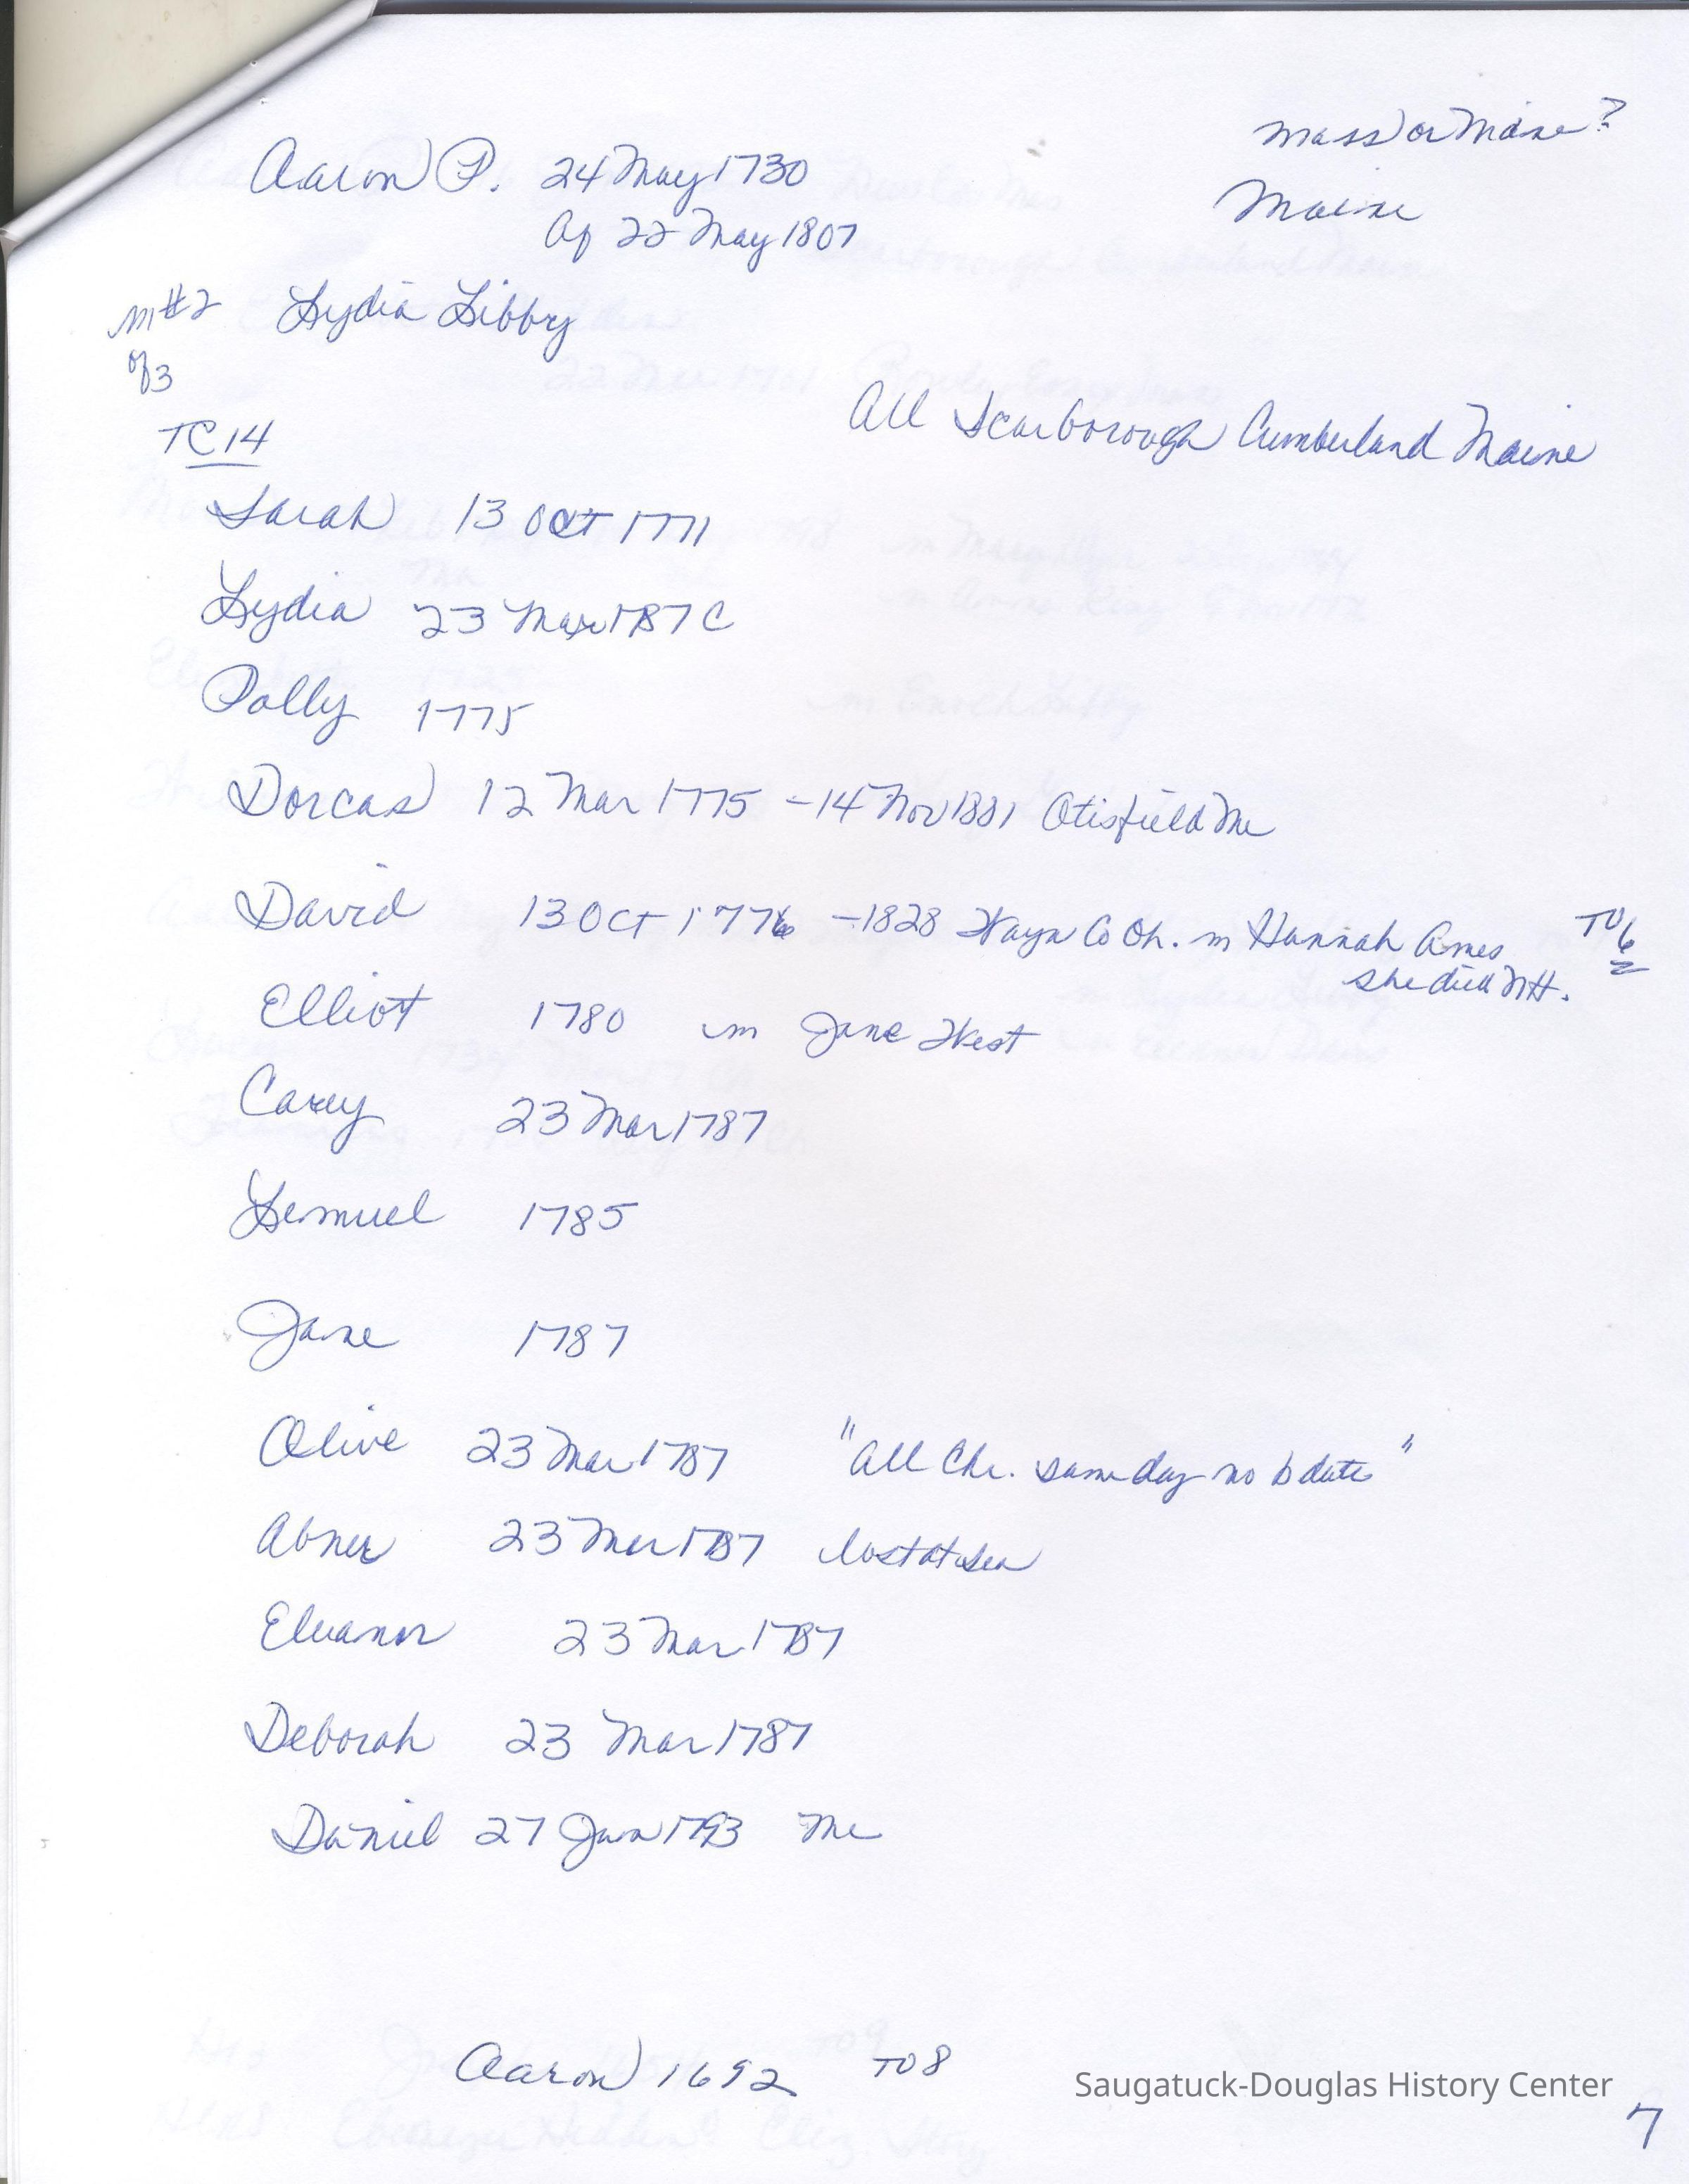 Mass or Maine?
Aaron P. 24 May 1730
Maine
Af 22 May 1807
m#2 Lydia Libby
of 3
All Scarborough Cumberland Maine
TC 14
Sarah 13 Oct 1771
Lydia 23 Mar 1787 C
Polly 1775
Dorcas 12 Mar 1775 - 14 Nov 1881 Otisfield Me
David 13 Oct 1776 - 1828 Wayn Co Oh. m Hannah Ames TO 6
she died NH.
Elliot 1780 m Jane West
Carey 23 Mar 1787
Lemuel 1785
Jane 1787
Olive 23 Mar 1787 "All Chr. same day no b date"
Abner 23 Mar 1787 lost at sea
Eleanor 23 Mar 1787
Deborah 23 Mar 1787
Daniel 27 Jan 1793 Me
Aaron 1692 TO 8
Saugatuck-Douglas History Center
7